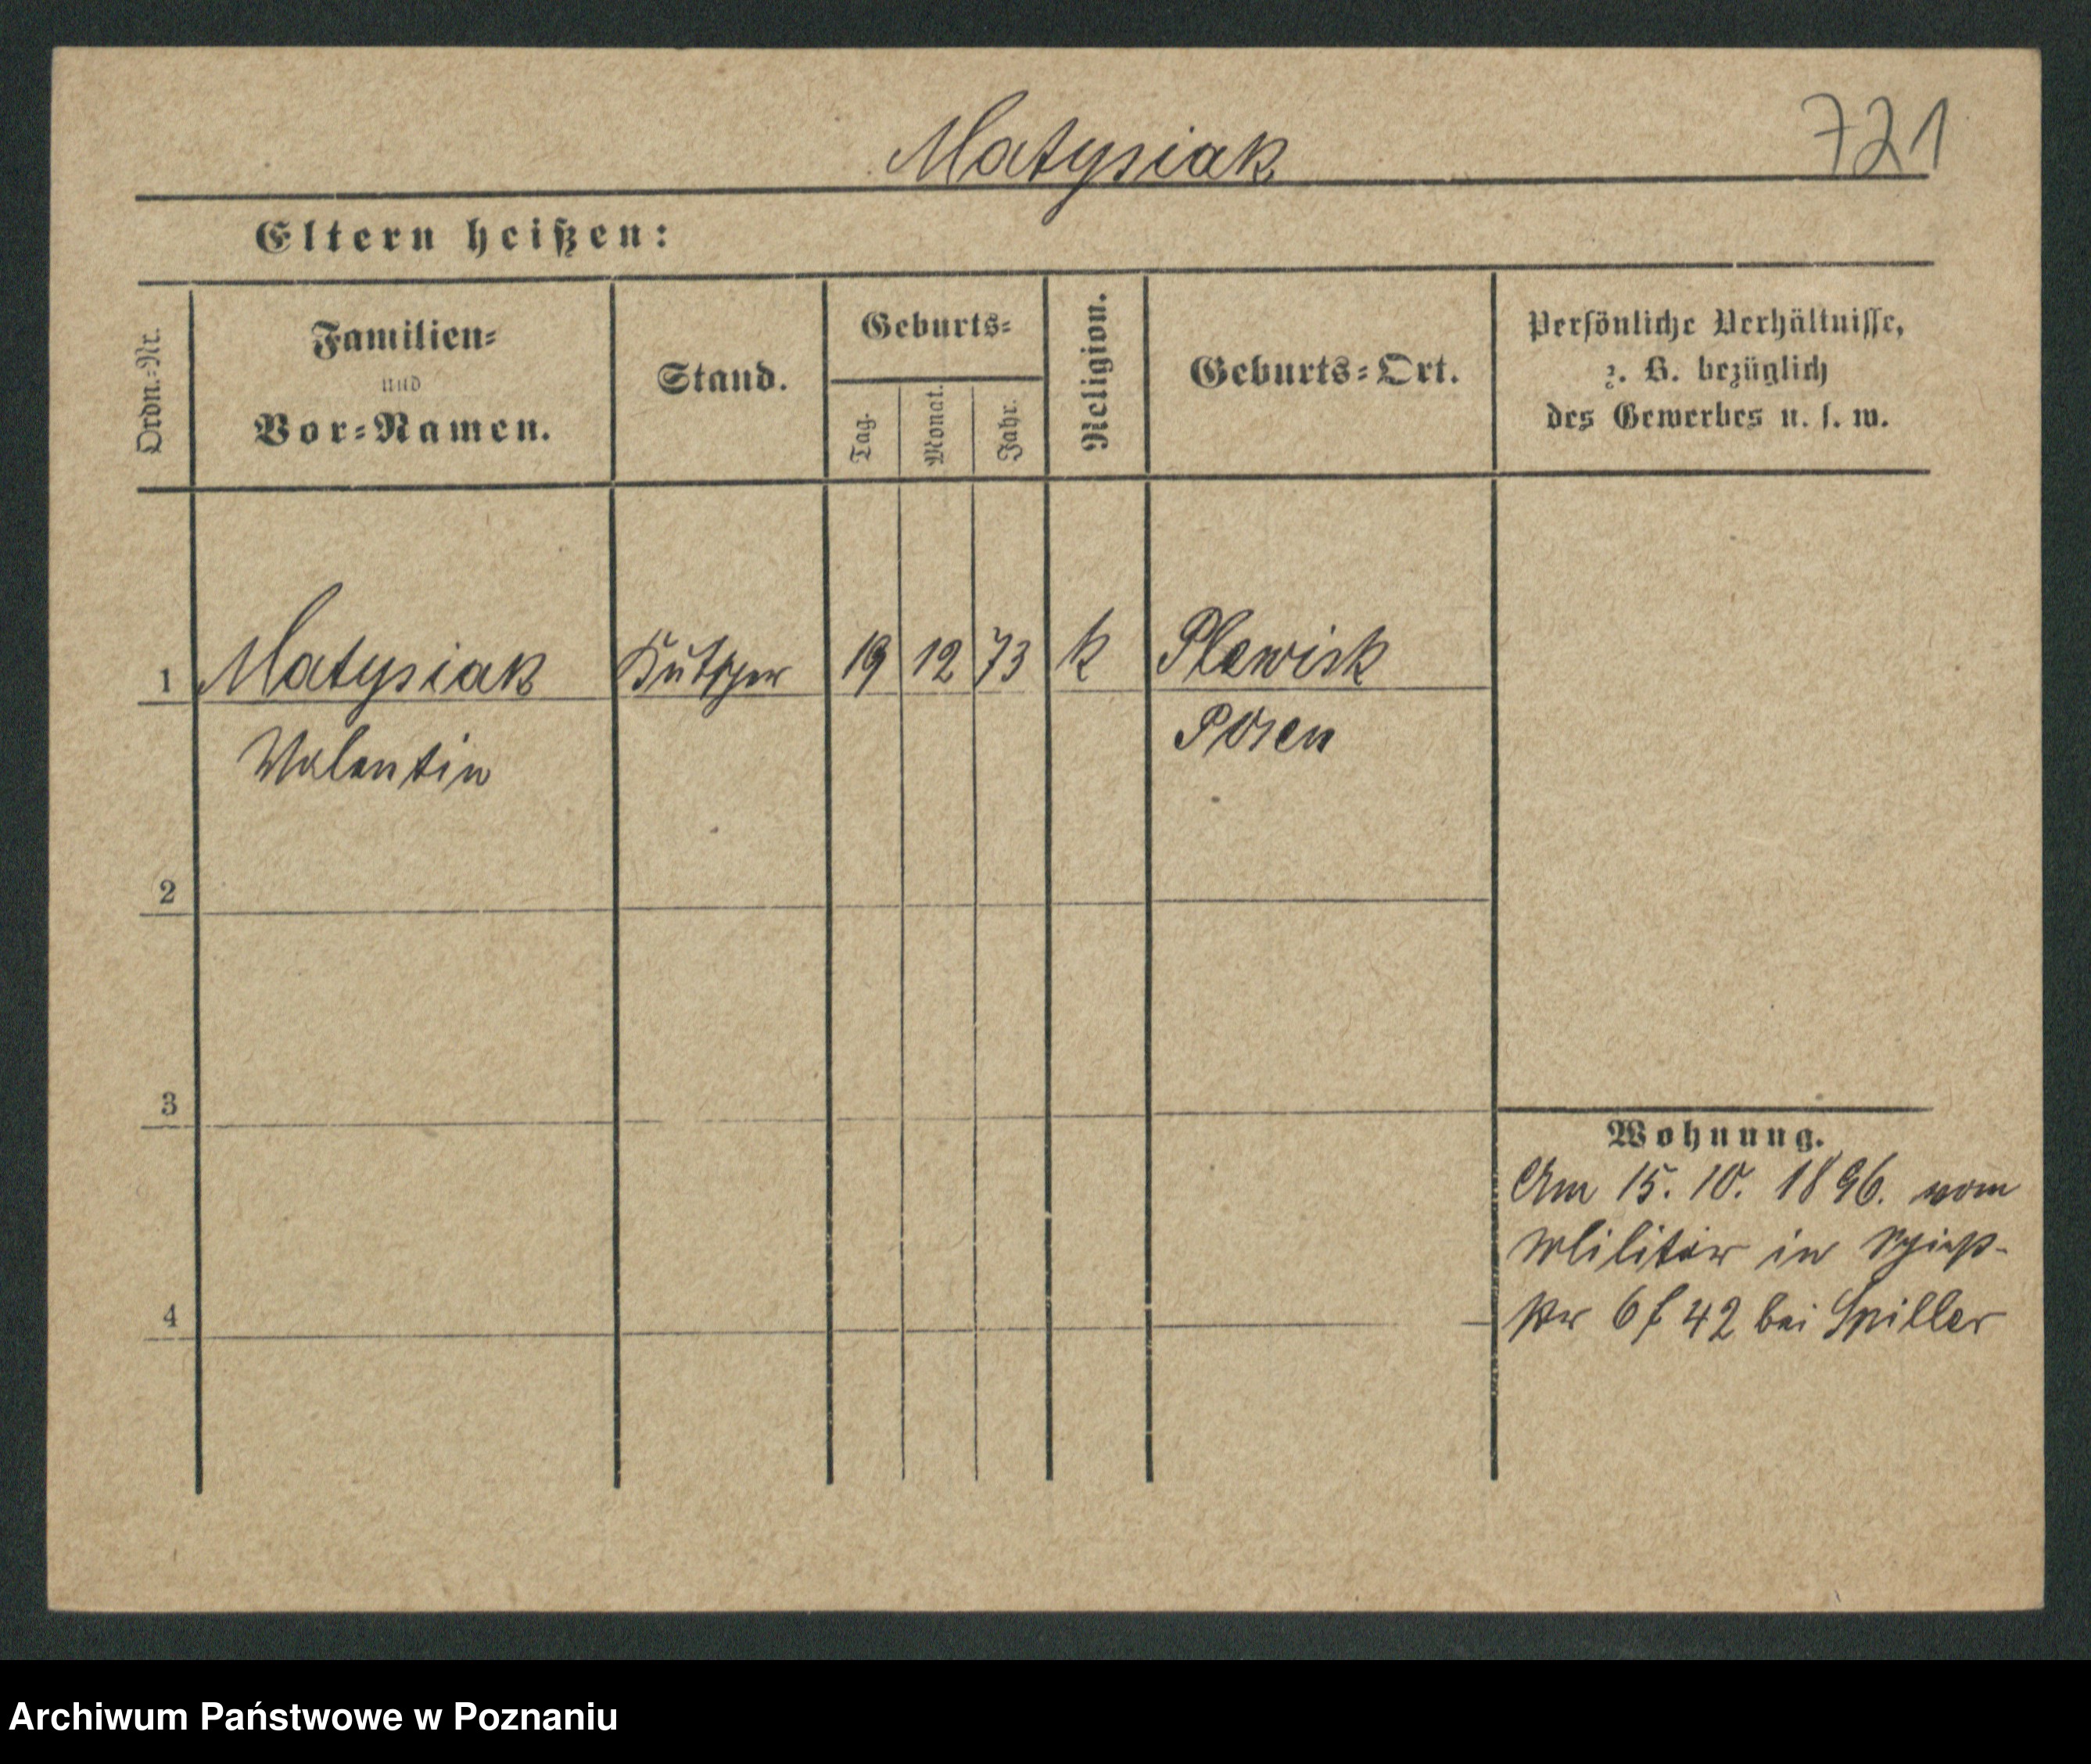 Matysiak 721
Eltern heißen:
Ordn.-Nr.
Familien-
und
Vor-Namen.
Stand.
Geburts-
Tag.
Monat.
Jahr.
Religion.
Geburts-Ort.
Persönliche Verhältnisse,
z. B. bezüglich
des Gewerbes u. s. w.
1 Matysiak Kutscher 19 12 73 k Plewisk
Valentin Posen
2
3
4
Wohnung.
Am 15. 10. 1896. vom
Militär in
42 bei Spiller
Archiwum Państwowe w Poznaniu